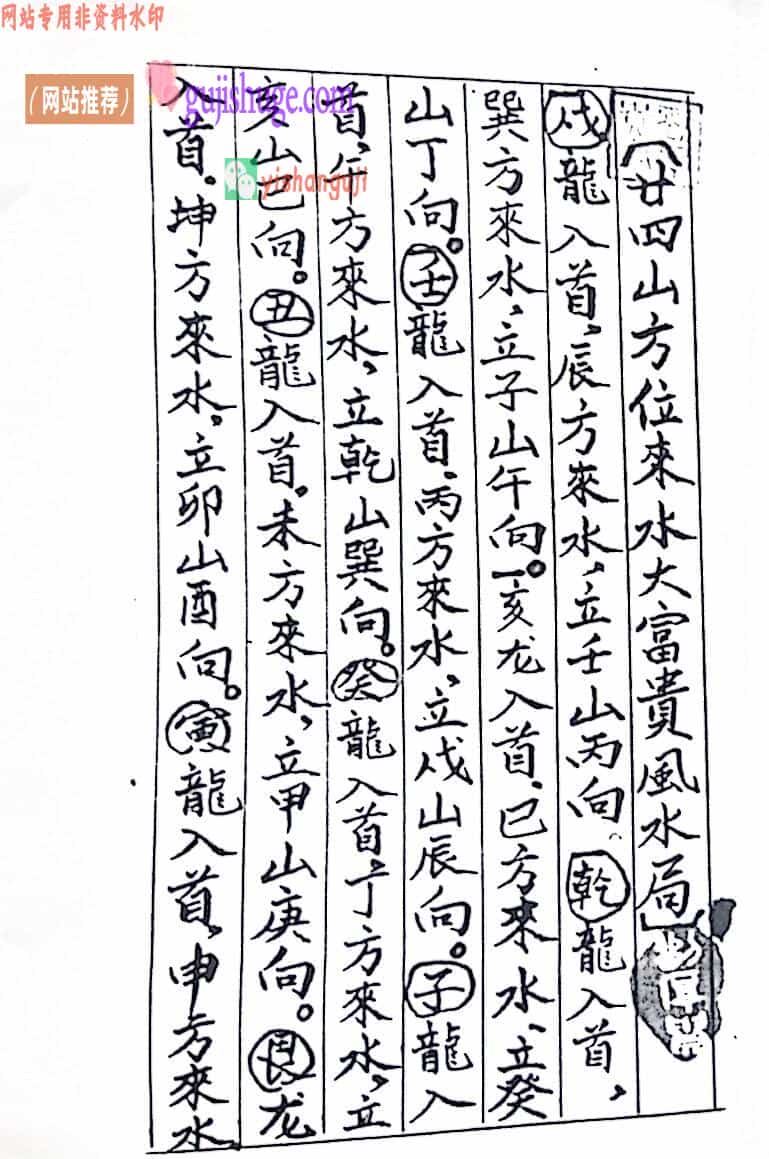 网站专用非资料水印
（网站推荐）
gujishuge.com
yishanguji
【廿四山方位來水大富貴風水局】
戌龍入首，辰方來水，立壬山丙向。乾龍入首，
巽方來水，立子山午向。亥龙入首、巳方來水、立癸
山丁向。壬龍入首、丙方來水，立戌山辰向。子龍入
首，午方來水，立乾山巽向。癸龍入首，丁方來水，立
亥山巳向。丑龍入首。未方來水，立甲山庚向。艮龙
入首。坤方來水，立卯山酉向。寅龍入首，申方來水